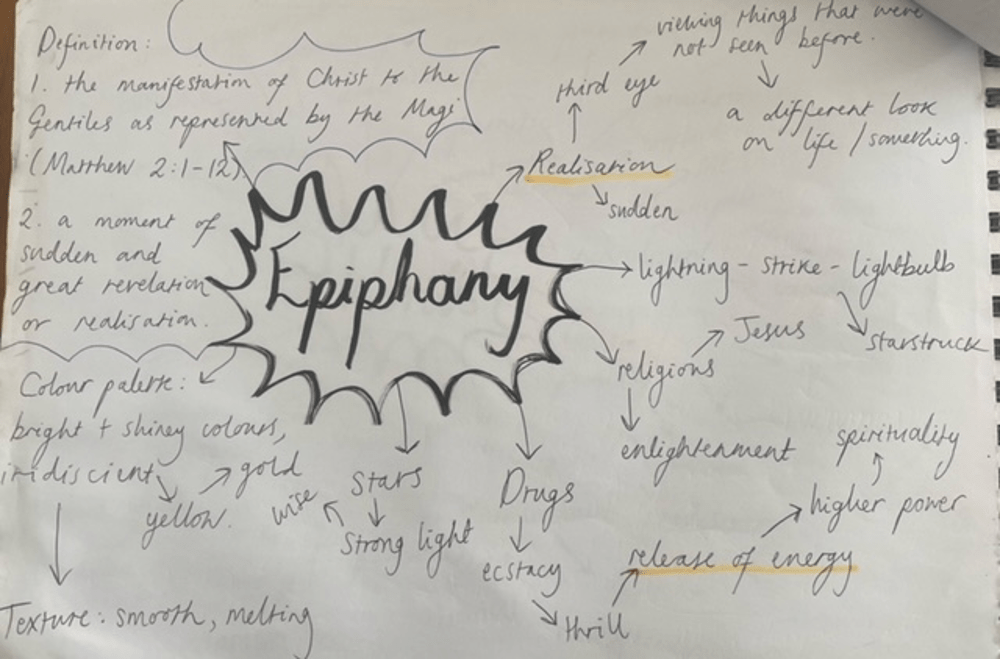 Definition:
1. the manifestation of Christ to the
Gentiles as represented by the Magi
(Matthew 2:1-12)
2. a moment of
sudden and
great revelation
or realisation.
Epiphany
Realisation
sudden
third eye
viewing things that were
not seen before.
a different look
on life / something.
lightning - strike - lightbulb
starstruck
religions
Jesus
enlightenment
Drugs
ecstacy
thrill
release of energy
higher power
spirituality
Stars
Strong light
wise
Colour palette:
bright + shiney colours,
iridiscient
yellow.
gold
Texture: smooth, melting